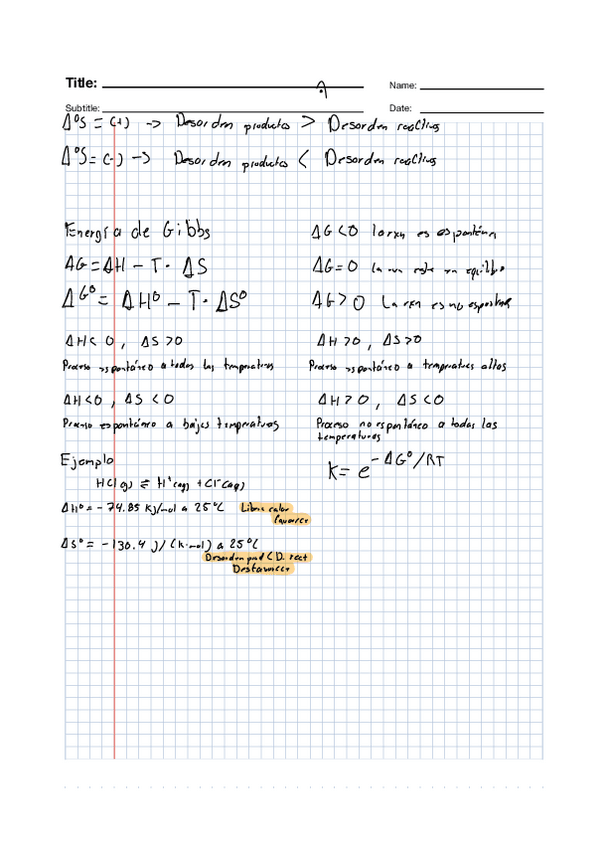 Title:
Name:
Subtitle:
Date:
Δ°S = (+) -> Desorden productos > Desorden reactivos
Δ°S = (-) -> Desorden productos < Desorden reactivos
Energía de Gibbs
ΔG = ΔH - T · ΔS
ΔG° = ΔH° - T · ΔS°
ΔG < 0 la rxn es espontánea
ΔG = 0 la rxn está en equilibrio
ΔG > 0 La rxn es no espontánea
ΔH < 0 , ΔS > 0
Proceso espontáneo a todas las temperaturas
ΔH > 0 , ΔS > 0
Proceso espontáneo a temperaturas altas
ΔH < 0 , ΔS < 0
Proceso espontáneo a bajas temperaturas
ΔH > 0 , ΔS < 0
Proceso no espontáneo a todas las
temperaturas
Ejemplo
HCl(g) ⇌ H⁺(aq) + Cl⁻(aq)
K = e^-ΔG°/RT
ΔH° = -74.85 KJ/mol a 25°C Libera calor
favorece
ΔS° = -130.4 J/(K·mol) a 25°C
Desorden prod < D. react
Desfavorece